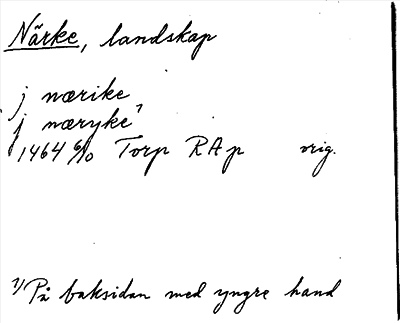 Närke, landskap
j nærike
j næryke 1)
1464 6/10 Torp RAp orig.
1) På baksidan med yngre hand